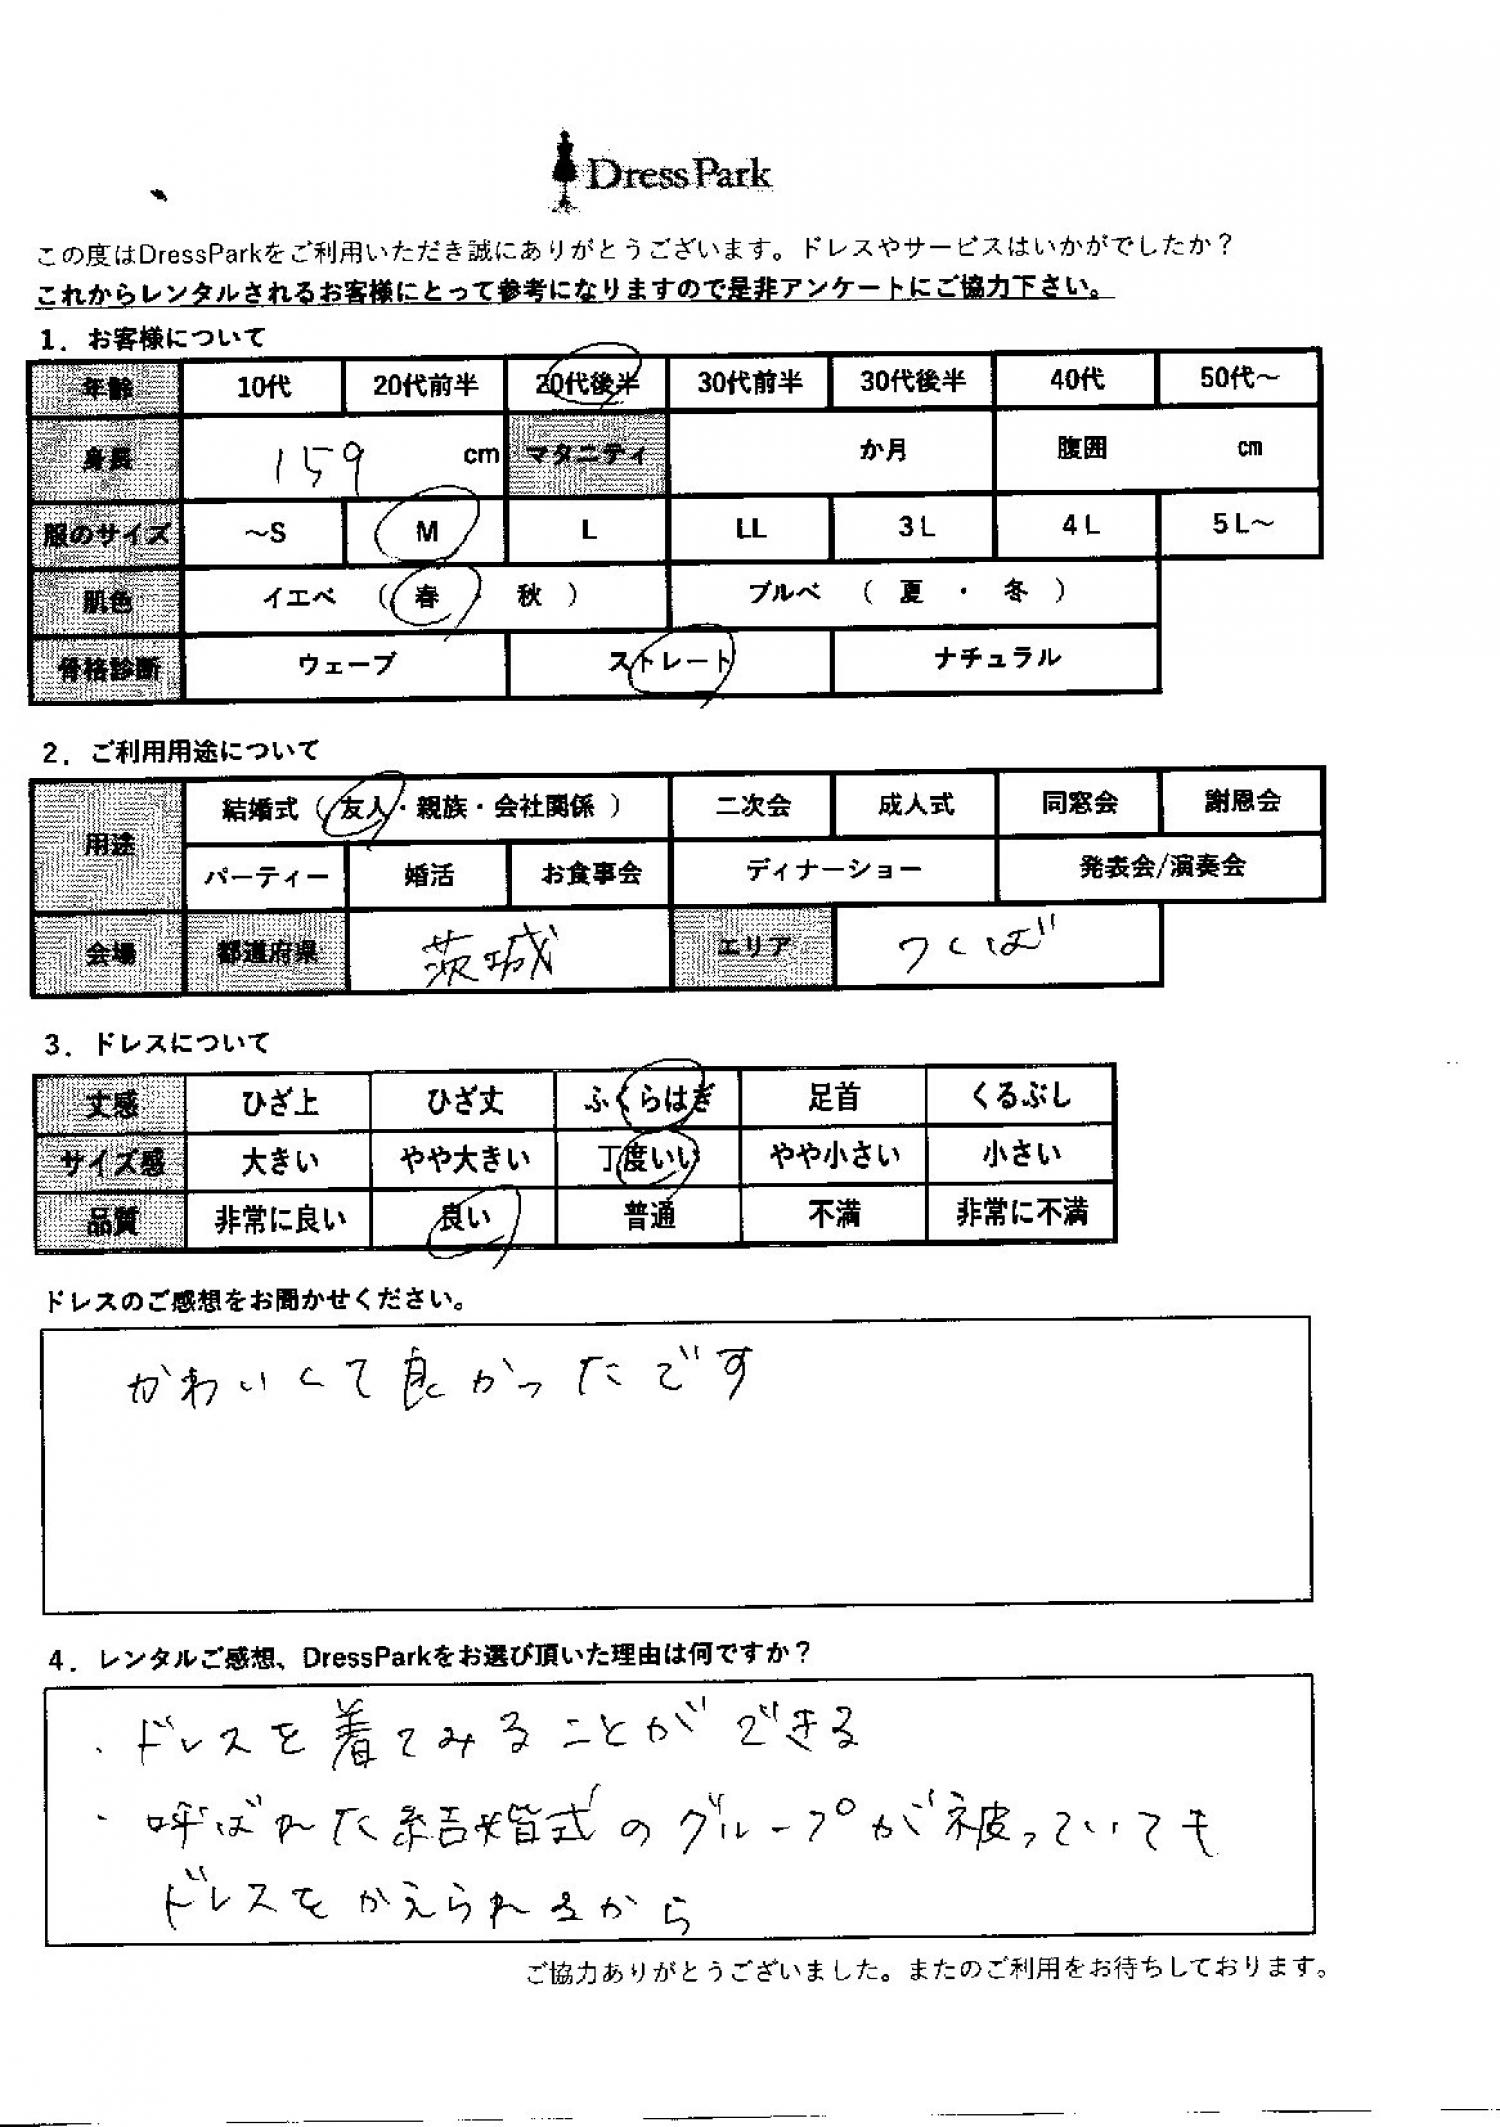 DressPark
この度はDressParkをご利用いただき誠にありがとうございます。ドレスやサービスはいかがでしたか？
これからレンタルされるお客様にとって参考になりますので是非アンケートにご協力下さい。
1．お客様について
年齢 10代 20代前半 20代後半 30代前半 30代後半 40代 50代～
身長 159 cm マタニティ か月 腹囲 cm
服のサイズ ～S M L LL 3L 4L 5L～
肌色 イエベ （ 春 ・ 秋 ） ブルベ （ 夏 ・ 冬 ）
骨格診断 ウェーブ ストレート ナチュラル
2．ご利用用途について
用途 結婚式（ 友人・親族・会社関係 ） 二次会 成人式 同窓会 謝恩会
パーティー 婚活 お食事会 ディナーショー 発表会/演奏会
会場 都道府県 茨城 エリア つくば
3．ドレスについて
丈感 ひざ上 ひざ丈 ふくらはぎ 足首 くるぶし
サイズ感 大きい やや大きい 丁度いい やや小さい 小さい
品質 非常に良い 良い 普通 不満 非常に不満
ドレスのご感想をお聞かせください。
かわいくて良かったです
4．レンタルご感想、DressParkをお選び頂いた理由は何ですか？
・ドレスを着てみることができる
・呼ばれた結婚式のグループが被っていても
ドレスをかえられるから
ご協力ありがとうございました。またのご利用をお待ちしております。